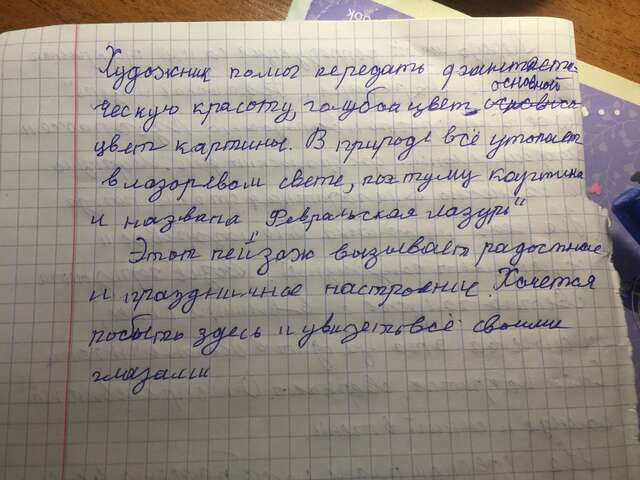 Художник помог передать фантасти-
ческую красоту, голубой цвет основной
цвет картины. В природе всё утопает
в лазоревом свете, поэтуму картина
и названа "Февральская глазурь"
Этот пейзаж вызывает радостные
и праздничное настроение. Хочется
побыть здесь и увидеть всё своими
глазами
ook